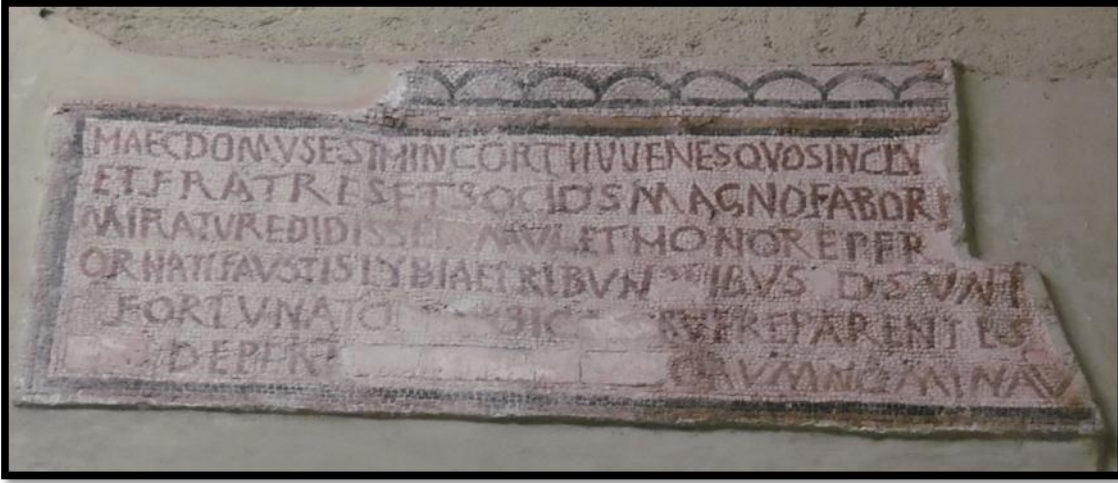 HAECDOMVSESTHINCORTIIVVENESQVOSINCLV
ETFRATRESETSOCIOSMAGNOFABOR
MIRATVREDIDISSE MVL ETHONOREPER
ORNATIFAVSTISLYBIAETRIBVN IBVS DSVNT
FORTVNATO SIC RVEREPARENTES
DEPERT RVMNOMINAV